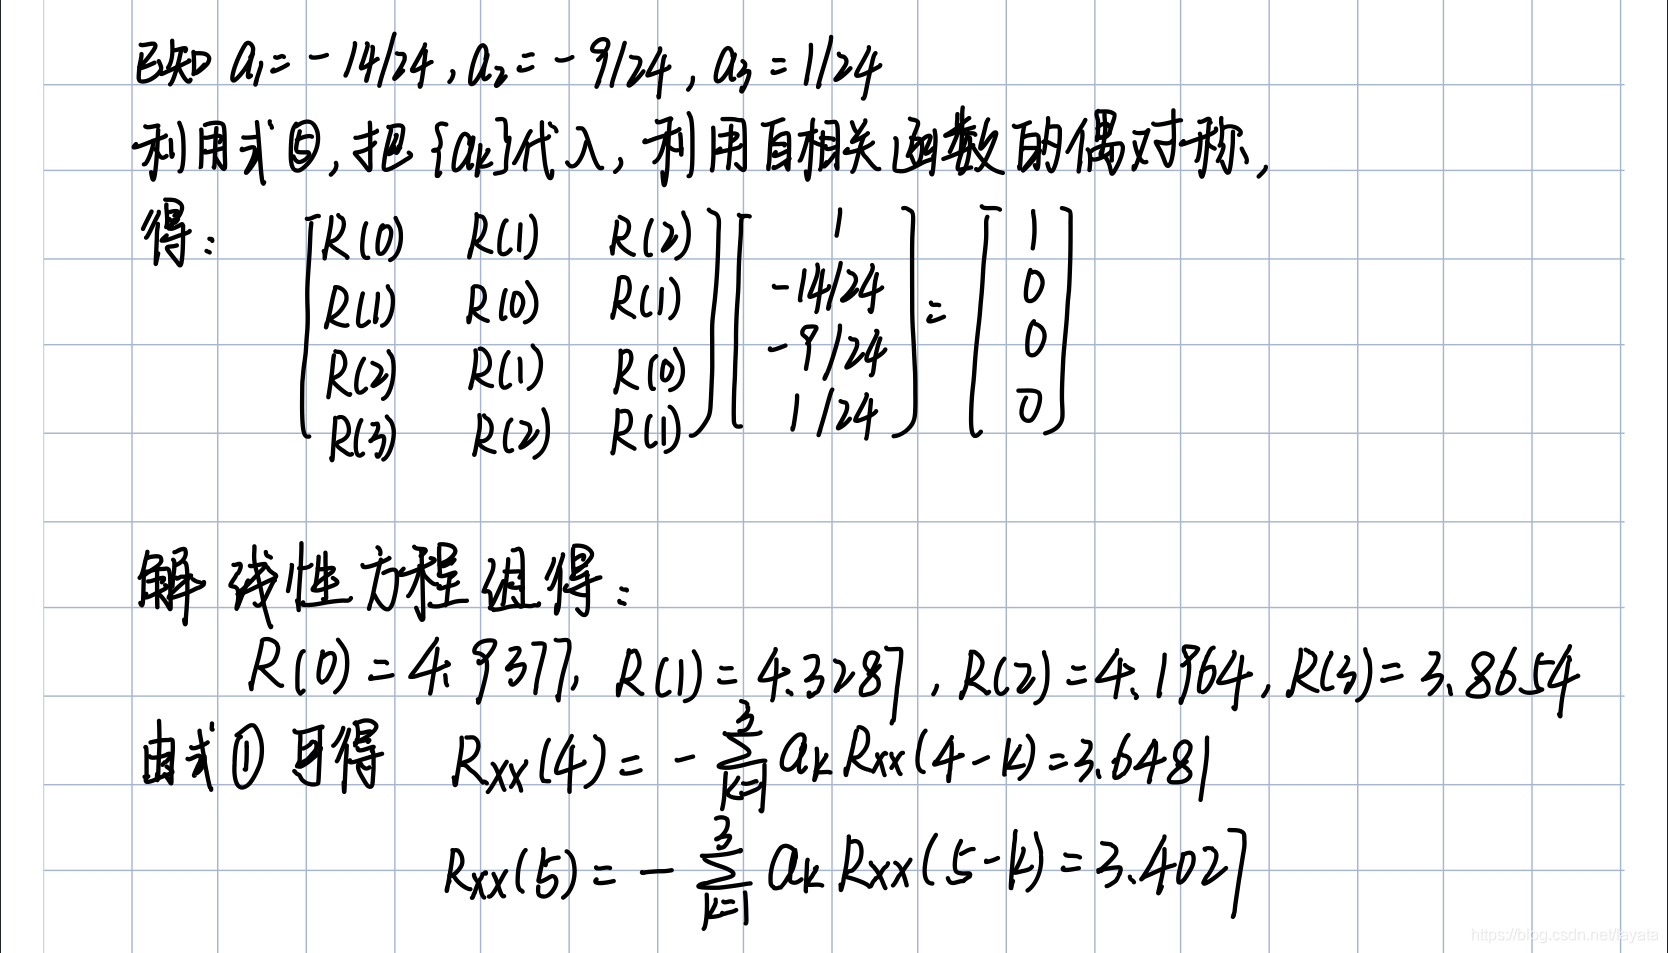 已知 a₁=-14/24, a₂=-9/24, a₃=1/24
利用式⑤,把{aₖ}代入,利用自相关函数的偶对称,
得: [R(0) R(1) R(2)] [1] = [1]
[R(1) R(0) R(1)] [-14/24] [0]
[R(2) R(1) R(0)] [-9/24] [0]
[R(3) R(2) R(1)] [1/24] [0]
解线性方程组得:
R(0)=4.9377, R(1)=4.3287, R(2)=4.1964, R(3)=3.8654
由式①可得 Rxx(4)=-∑_{k=1}^{3} aₖRxx(4-k)=3.6481
Rxx(5)=-∑_{k=1}^{3} aₖRxx(5-k)=3.4027
https://blog.csdn.net/layata